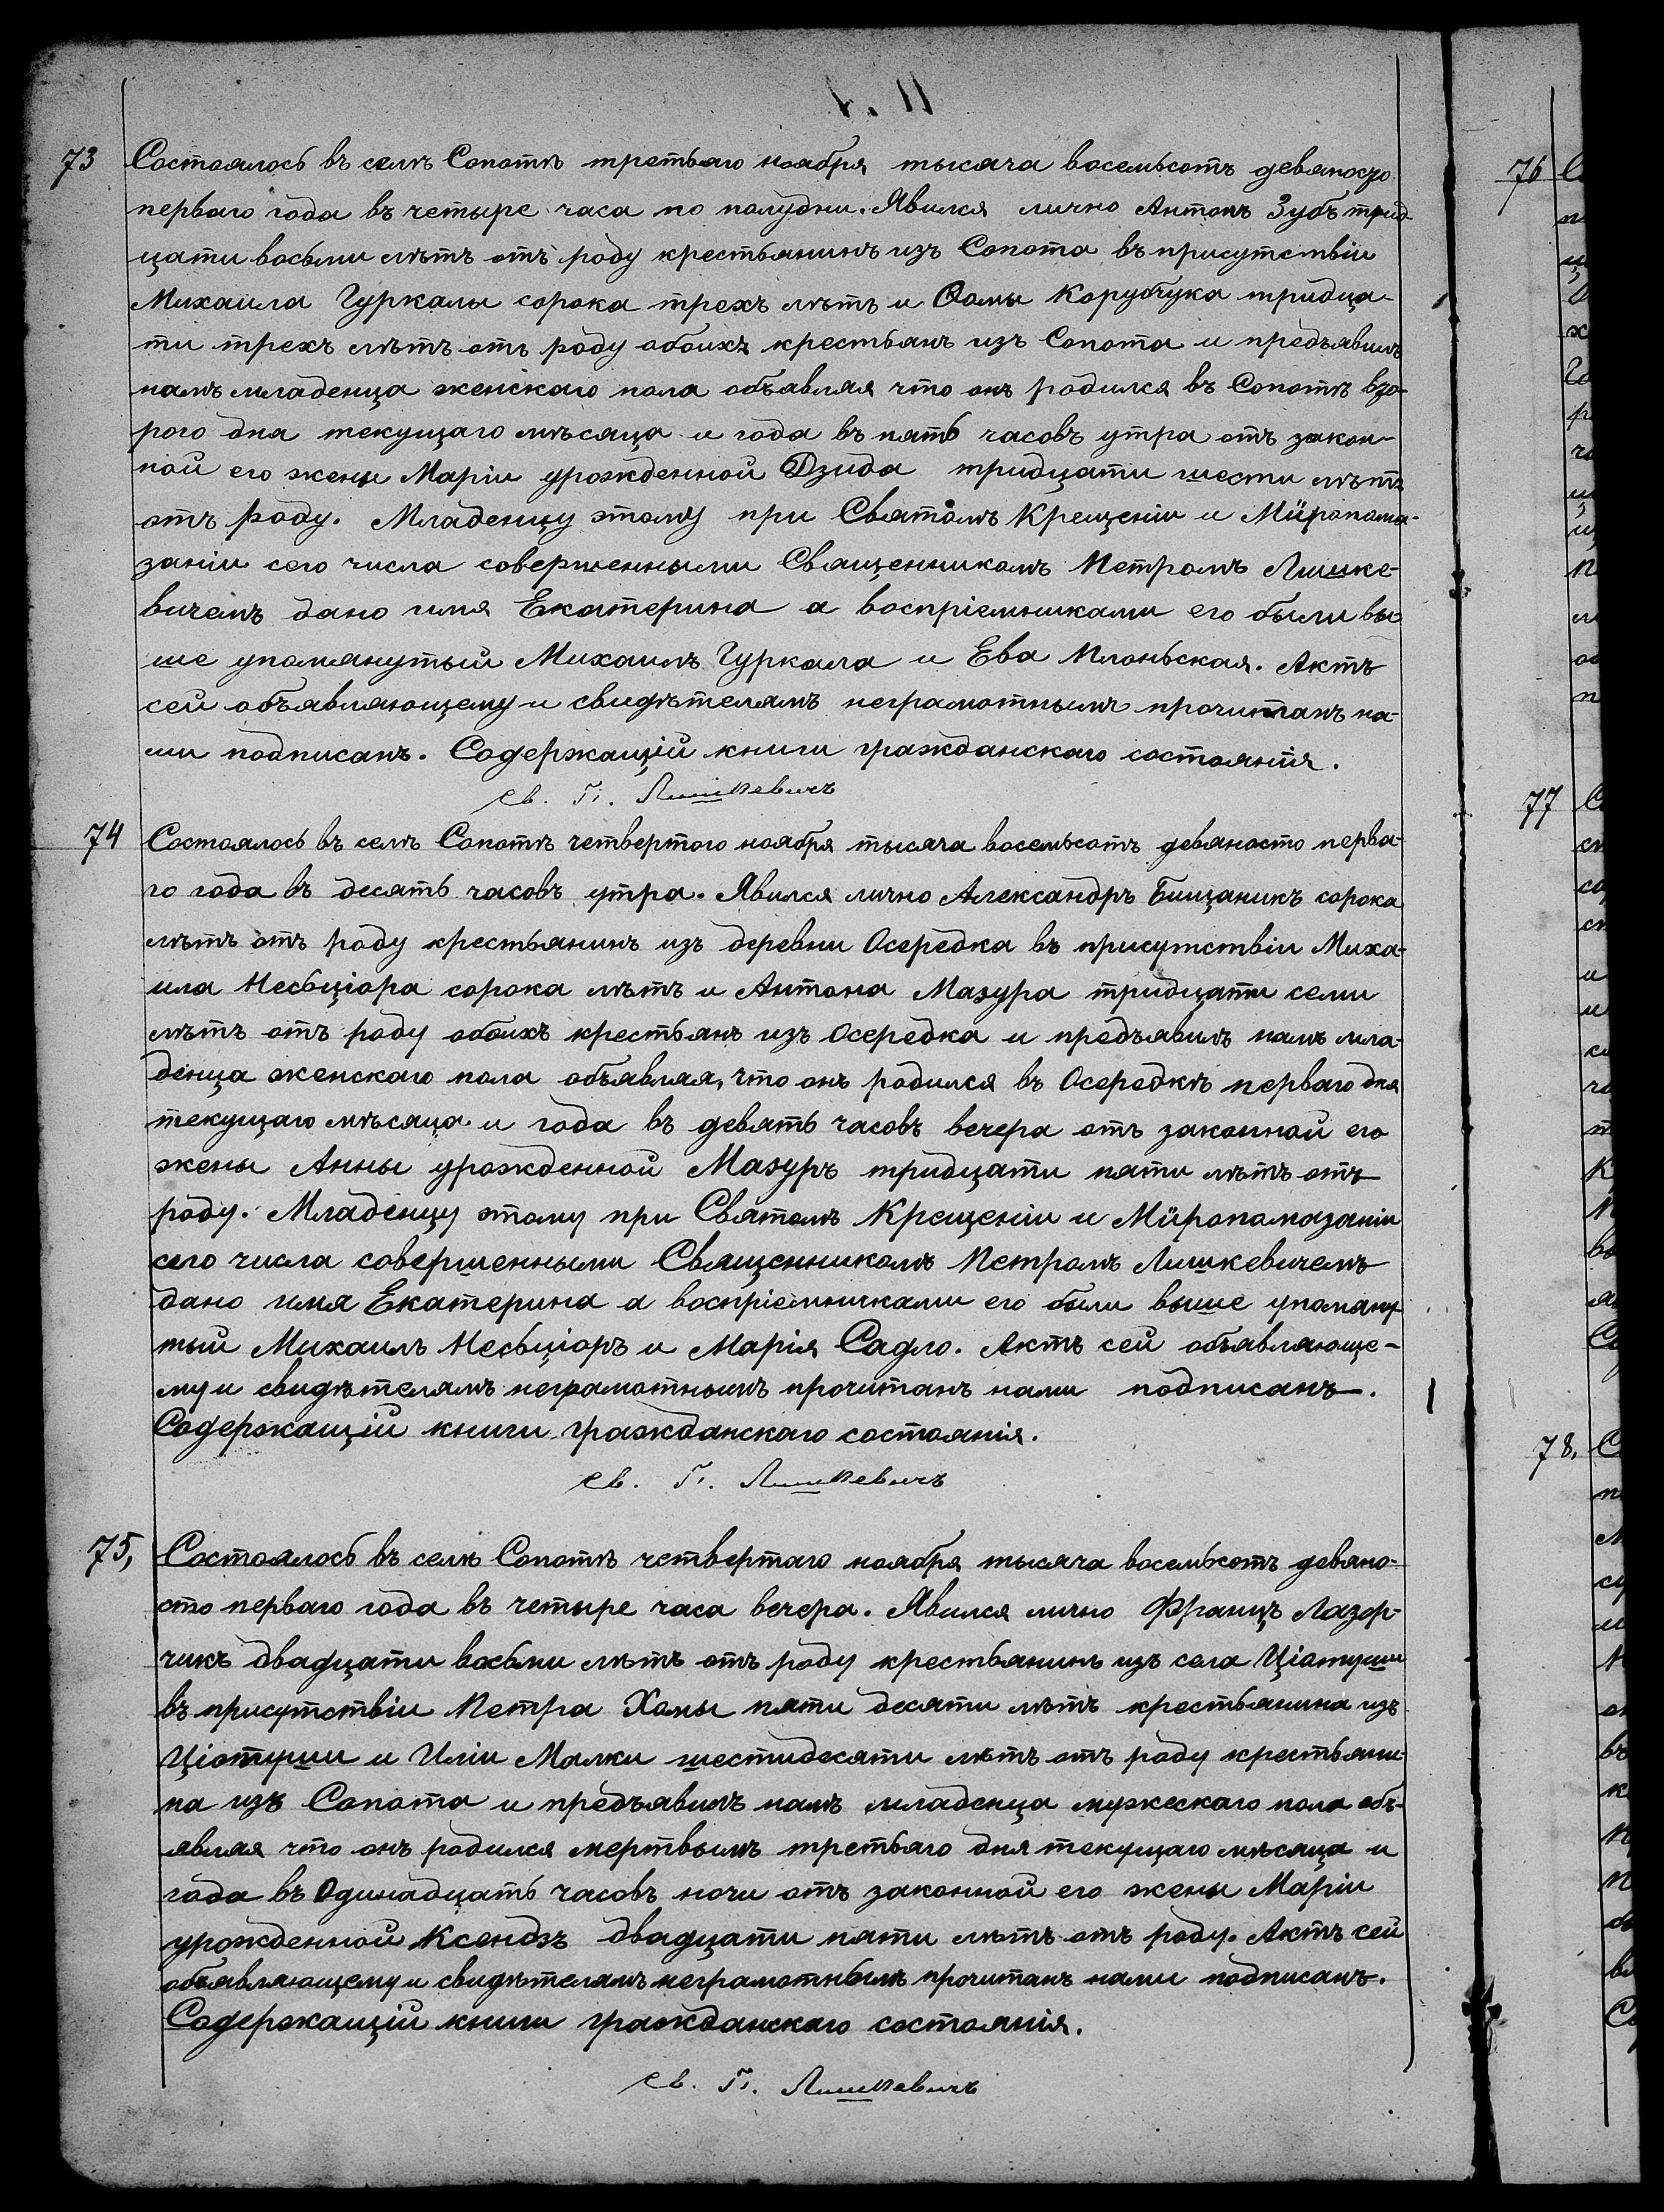 73 Состоялось въ селѣ Сопотѣ третьяго ноября тысяча восемьсотъ девяносто
перваго года въ четыре часа по полудни. Явился лично Антонъ Зубъ трид-
цати восьми лѣтъ отъ роду крестьянинъ изъ Сопота въ присутствіи
Михаила Гуркалы сорока трехъ лѣтъ и Ѳомы тридца-
ти трехъ лѣтъ отъ роду обоихъ крестьянъ изъ Сопота и предъявилъ
намъ младенца женскаго пола объявляя что онъ родился въ Сопотѣ вто-
рого дня текущаго мѣсяца и года въ пять часовъ утра отъ закон-
ной его жены Маріи урожденной Дзида тридцати шести лѣтъ
отъ роду. Младенцу этому при Святомъ Крещеніи и Мѵропома-
заніи сего числа совершенными Священникомъ Петромъ Лишке-
вичемъ дано имя Екатерина а воспріемниками его были вы-
ше упомянутый Михаилъ Гуркала и Ева Плоньская. Актъ
сей объявляющему и свидѣтелямъ неграмотнымъ прочитанъ на-
ми подписанъ. Содержащій книги гражданскаго состоянія.
Св. П. Лишкевичъ
74 Состоялось въ селѣ Сопотѣ четвертого ноября тысяча восемьсотъ девяносто перва-
го года въ десять часовъ утра. Явился лично Александръ Бищаникъ сорока
лѣтъ отъ роду крестьянинъ изъ деревни Осередка въ присутствіи Миха-
ила Несьціора сорока лѣтъ и Антона Мазура тридцати семи
лѣтъ отъ роду обоихъ крестьянъ изъ Осередка и предъявилъ намъ мла-
денца женскаго пола объявляя, что онъ родился въ Осередкѣ перваго дня
текущаго мѣсяца и года въ девять часовъ вечера отъ законной его
жены Анны урожденной Мазуръ тридцати пяти лѣтъ отъ
роду. Младенцу этому при Святомъ Крещеніи и Мѵропомазаніи
сего числа совершенными Священникомъ Петромъ Лишкевичемъ
дано имя Екатерина а воспріемниками его были выше упомяну-
тый Михаилъ Несьціоръ и Марія Садло. Актъ сей объявляюще-
му и свидѣтелямъ неграмотнымъ прочитанъ нами подписанъ.
Содержащій книги гражданскаго состоянія.
Св. П. Лишкевичъ
75, Состоялось въ селѣ Сопотѣ четвертаго ноября тысяча восемьсотъ девяно-
сто перваго года въ четыре часа вечера. Явился лично Францъ Лазор-
чикъ двадцати восьми лѣтъ отъ роду крестьянинъ изъ села Ціотуши
въ присутствіи Петра Хомы пяти десяти лѣтъ крестьянина изъ
Ціотуши и Иліи Малки шестидесяти лѣтъ отъ роду крестьяни-
на изъ Сопота и предъявилъ намъ младенца мужескаго пола объ-
являя что онъ родился мертвымъ третьяго дня текущаго мѣсяца и
года въ Одинадцать часовъ ночи отъ законной его жены Маріи
урожденной Ксендзъ двадцати пяти лѣтъ отъ роду. Актъ сей
объявляющему и свидѣтелямъ неграмотнымъ прочитанъ нами подписанъ.
Содержащій книги гражданскаго состоянія.
Св. П. Лишкевичъ
76
77
78.